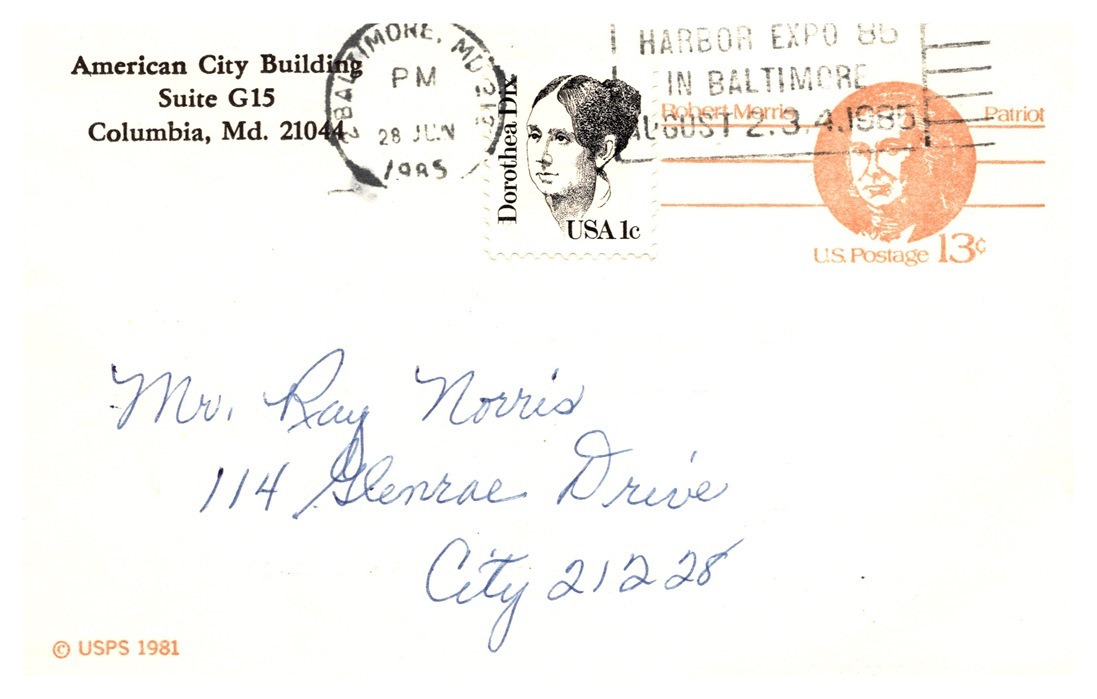 American City Building
Suite G15
Columbia, Md. 21044
BALTIMORE, MD 212
PM
28 JUN
1985
HARBOR EXPO 85
IN BALTIMORE
AUGUST 2.3.4.1985
Dorothea Dix
USA 1c
Robert Morris
Patriot
U.S. Postage 13¢
Mr. Ray Norris
114 Glenrae Drive
City 21228
© USPS 1981